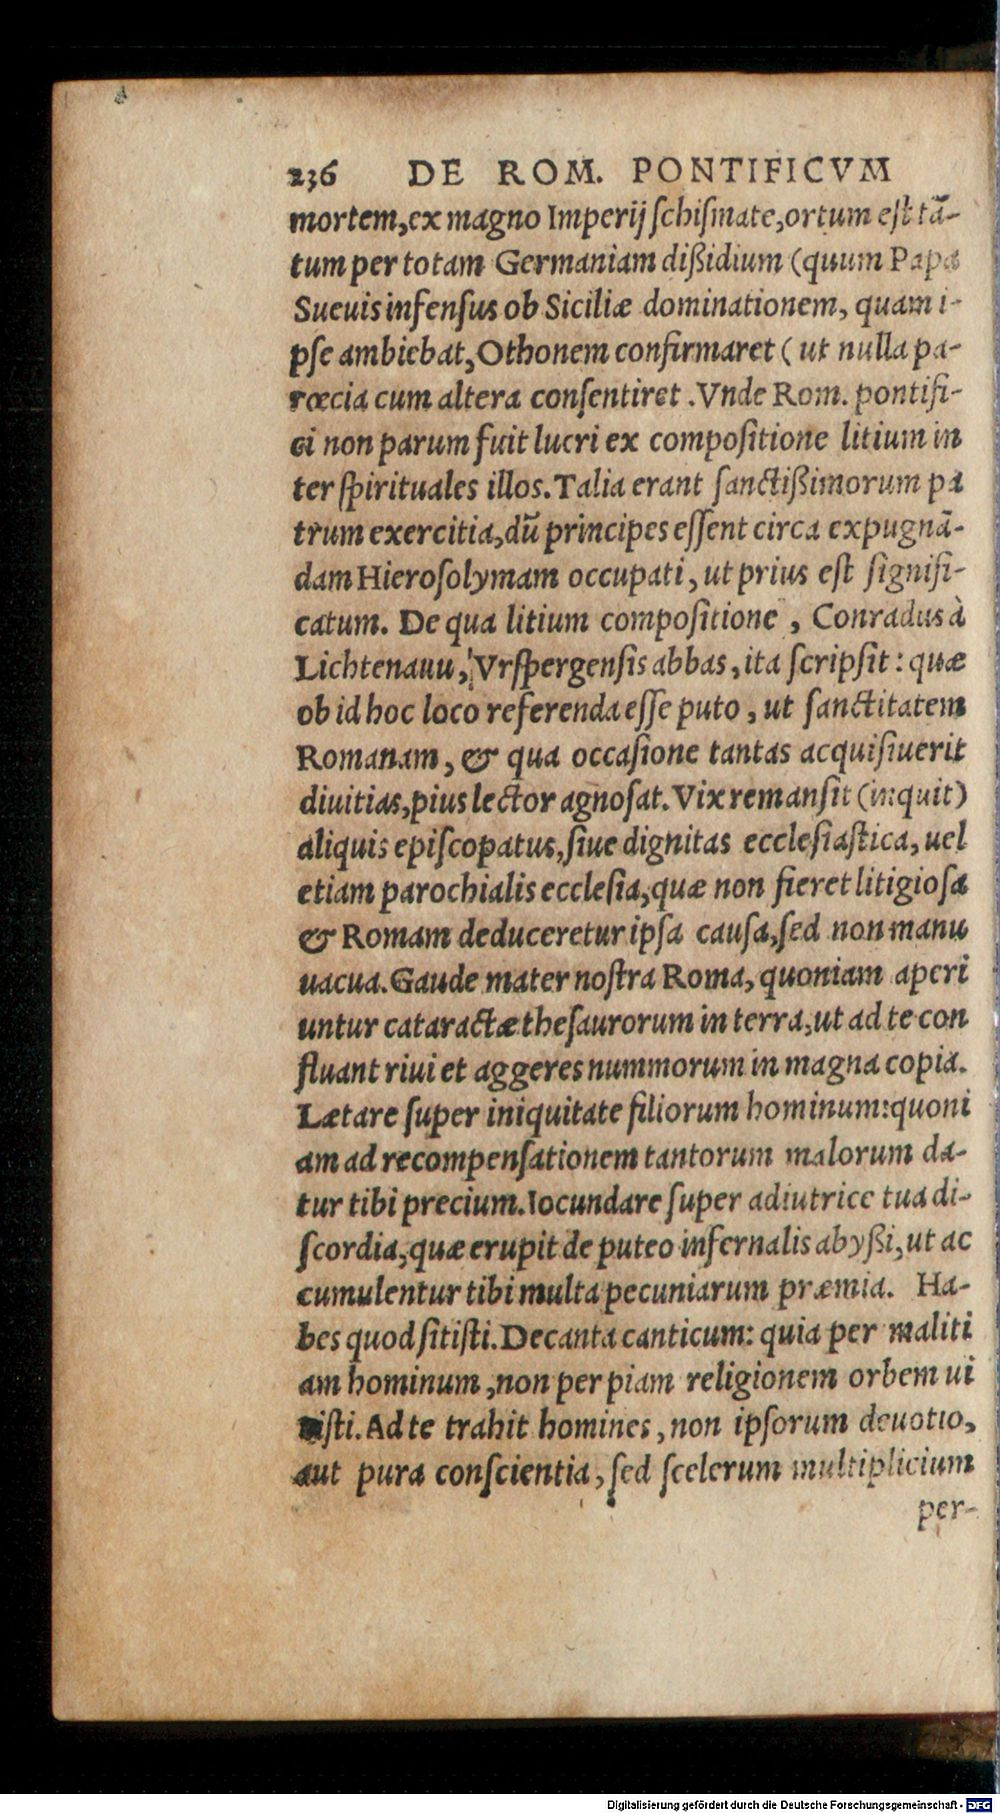 236 DE ROM. PONTIFICVM
mortem, ex magno Imperij ſchiſmate, ortum eſt tā-
tum per totam Germaniam dißidium (quum Papa
Sueuis infenſus ob Siciliæ dominationem, quam i-
pſe ambiebat, Othonem confirmaret ( ut nulla pa-
rœcia cum altera conſentiret . Vnde Rom. pontifi-
ci non parum fuit lucri ex compoſitione litium in
ter ſpirituales illos. Talia erant ſanctißimorum pa
trum exercitia, dū principes eſſent circa expugnā-
dam Hieroſolymam occupati, ut prius eſt ſignifi-
catum. De qua litium compoſitione , Conradus à
Lichtenauu, Vrſpergenſis abbas, ita ſcripſit : quæ
ob id hoc loco referenda eſſe puto , ut ſanctitatem
Romanam, & qua occaſione tantas acquiſiuerit
diuitias, pius lector agnoſat. Vix remanſit (inquit)
aliquis epiſcopatus, ſiue dignitas eccleſiaſtica, uel
etiam parochialis eccleſia, quæ non fieret litigioſa
& Romam deduceretur ipſa cauſa, ſed non manu
uacua. Gaude mater noſtra Roma, quoniam aperi
untur cataractæ theſaurorum in terra, ut ad te con
fluant riui et aggeres nummorum in magna copia.
Lætare ſuper iniquitate filiorum hominum: quoni
am ad recompenſationem tantorum malorum da-
tur tibi precium. Iocundare ſuper adiutrice tua di-
ſcordia, quæ erupit de puteo infernalis abyßi, ut ac
cumulentur tibi multa pecuniarum præmia. Ha-
bes quod ſitiſti. Decanta canticum: quia per maliti
am hominum, non per piam religionem orbem ui
ciſti. Ad te trahit homines, non ipſorum deuotio,
aut pura conſcientia, ſed ſcelerum multiplicium
per-
Digitalisierung gefördert durch die Deutsche Forschungsgemeinschaft - DFG